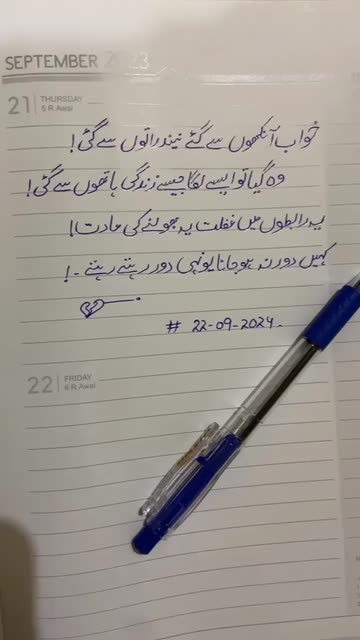 SEPTEMBER 2023
21 THURSDAY
5 R.Awal
خواب آنکھوں سے گئے نیند راتوں سے گئی!
وہ گیا تو ایسے لگا جیسے زندگی ہاتھوں سے گئی!
یہ رابطوں میں غفلت یہ بھولنے کی عادت!
کہیں دور نہ ہو جانا یونہی دور رہتے رہتے -!
# 22-09-2024.
22 FRIDAY
6 R.Awal